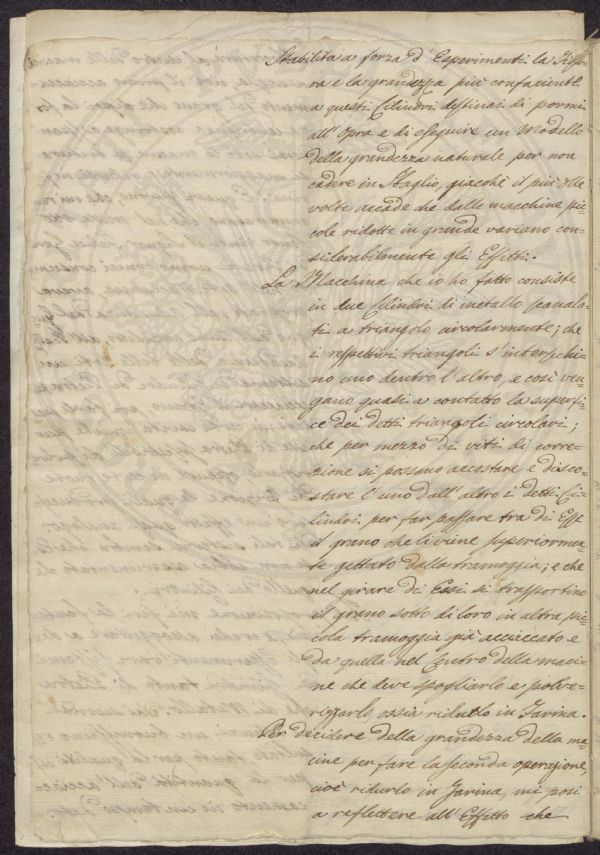 Stabilita a forza d' Esperimenti la Figu-
ra e la grandezza più confacienti
a questi Cilindri destinai di pormi
all' Opra e di eseguire un Modello
della grandezza naturale per non
cadere in Sbaglio, giacchè il più delle
volte accade che dalle macchine pic-
cole ridotte in grande variano con-
siderabilmente gli Effetti.
La Macchina che io ho fatto consiste
in due Cilindri di metallo scanala-
ti a triangolo circolarmente; che
i respettivi triangoli s'interschi-
no uno dentro l'altro, e così ven-
gano quasi a contatto la superfi-
ce dei detti triangoli circolari;
che per mezzo di viti di corre-
zione si possano accostare e disco-
stare l'uno dall'altro i detti Ci-
lindri per far passare tra di Essi
il grano che li viene superiormen-
te gettato dalla tramoggia; e che
nel girare di Essi si trasportino
il grano sotto di loro in altra pic-
cola tramoggia già acciccato e
da quella nel Centro della maci-
ne che deve spogliarlo e polve-
rizzarlo, ossia ridurlo in Farina.
Per decidere della grandezza della ma-
cine per fare la seconda operazione,
cioè ridurlo in Farina, mi posi
a reflettere all' Effetto che